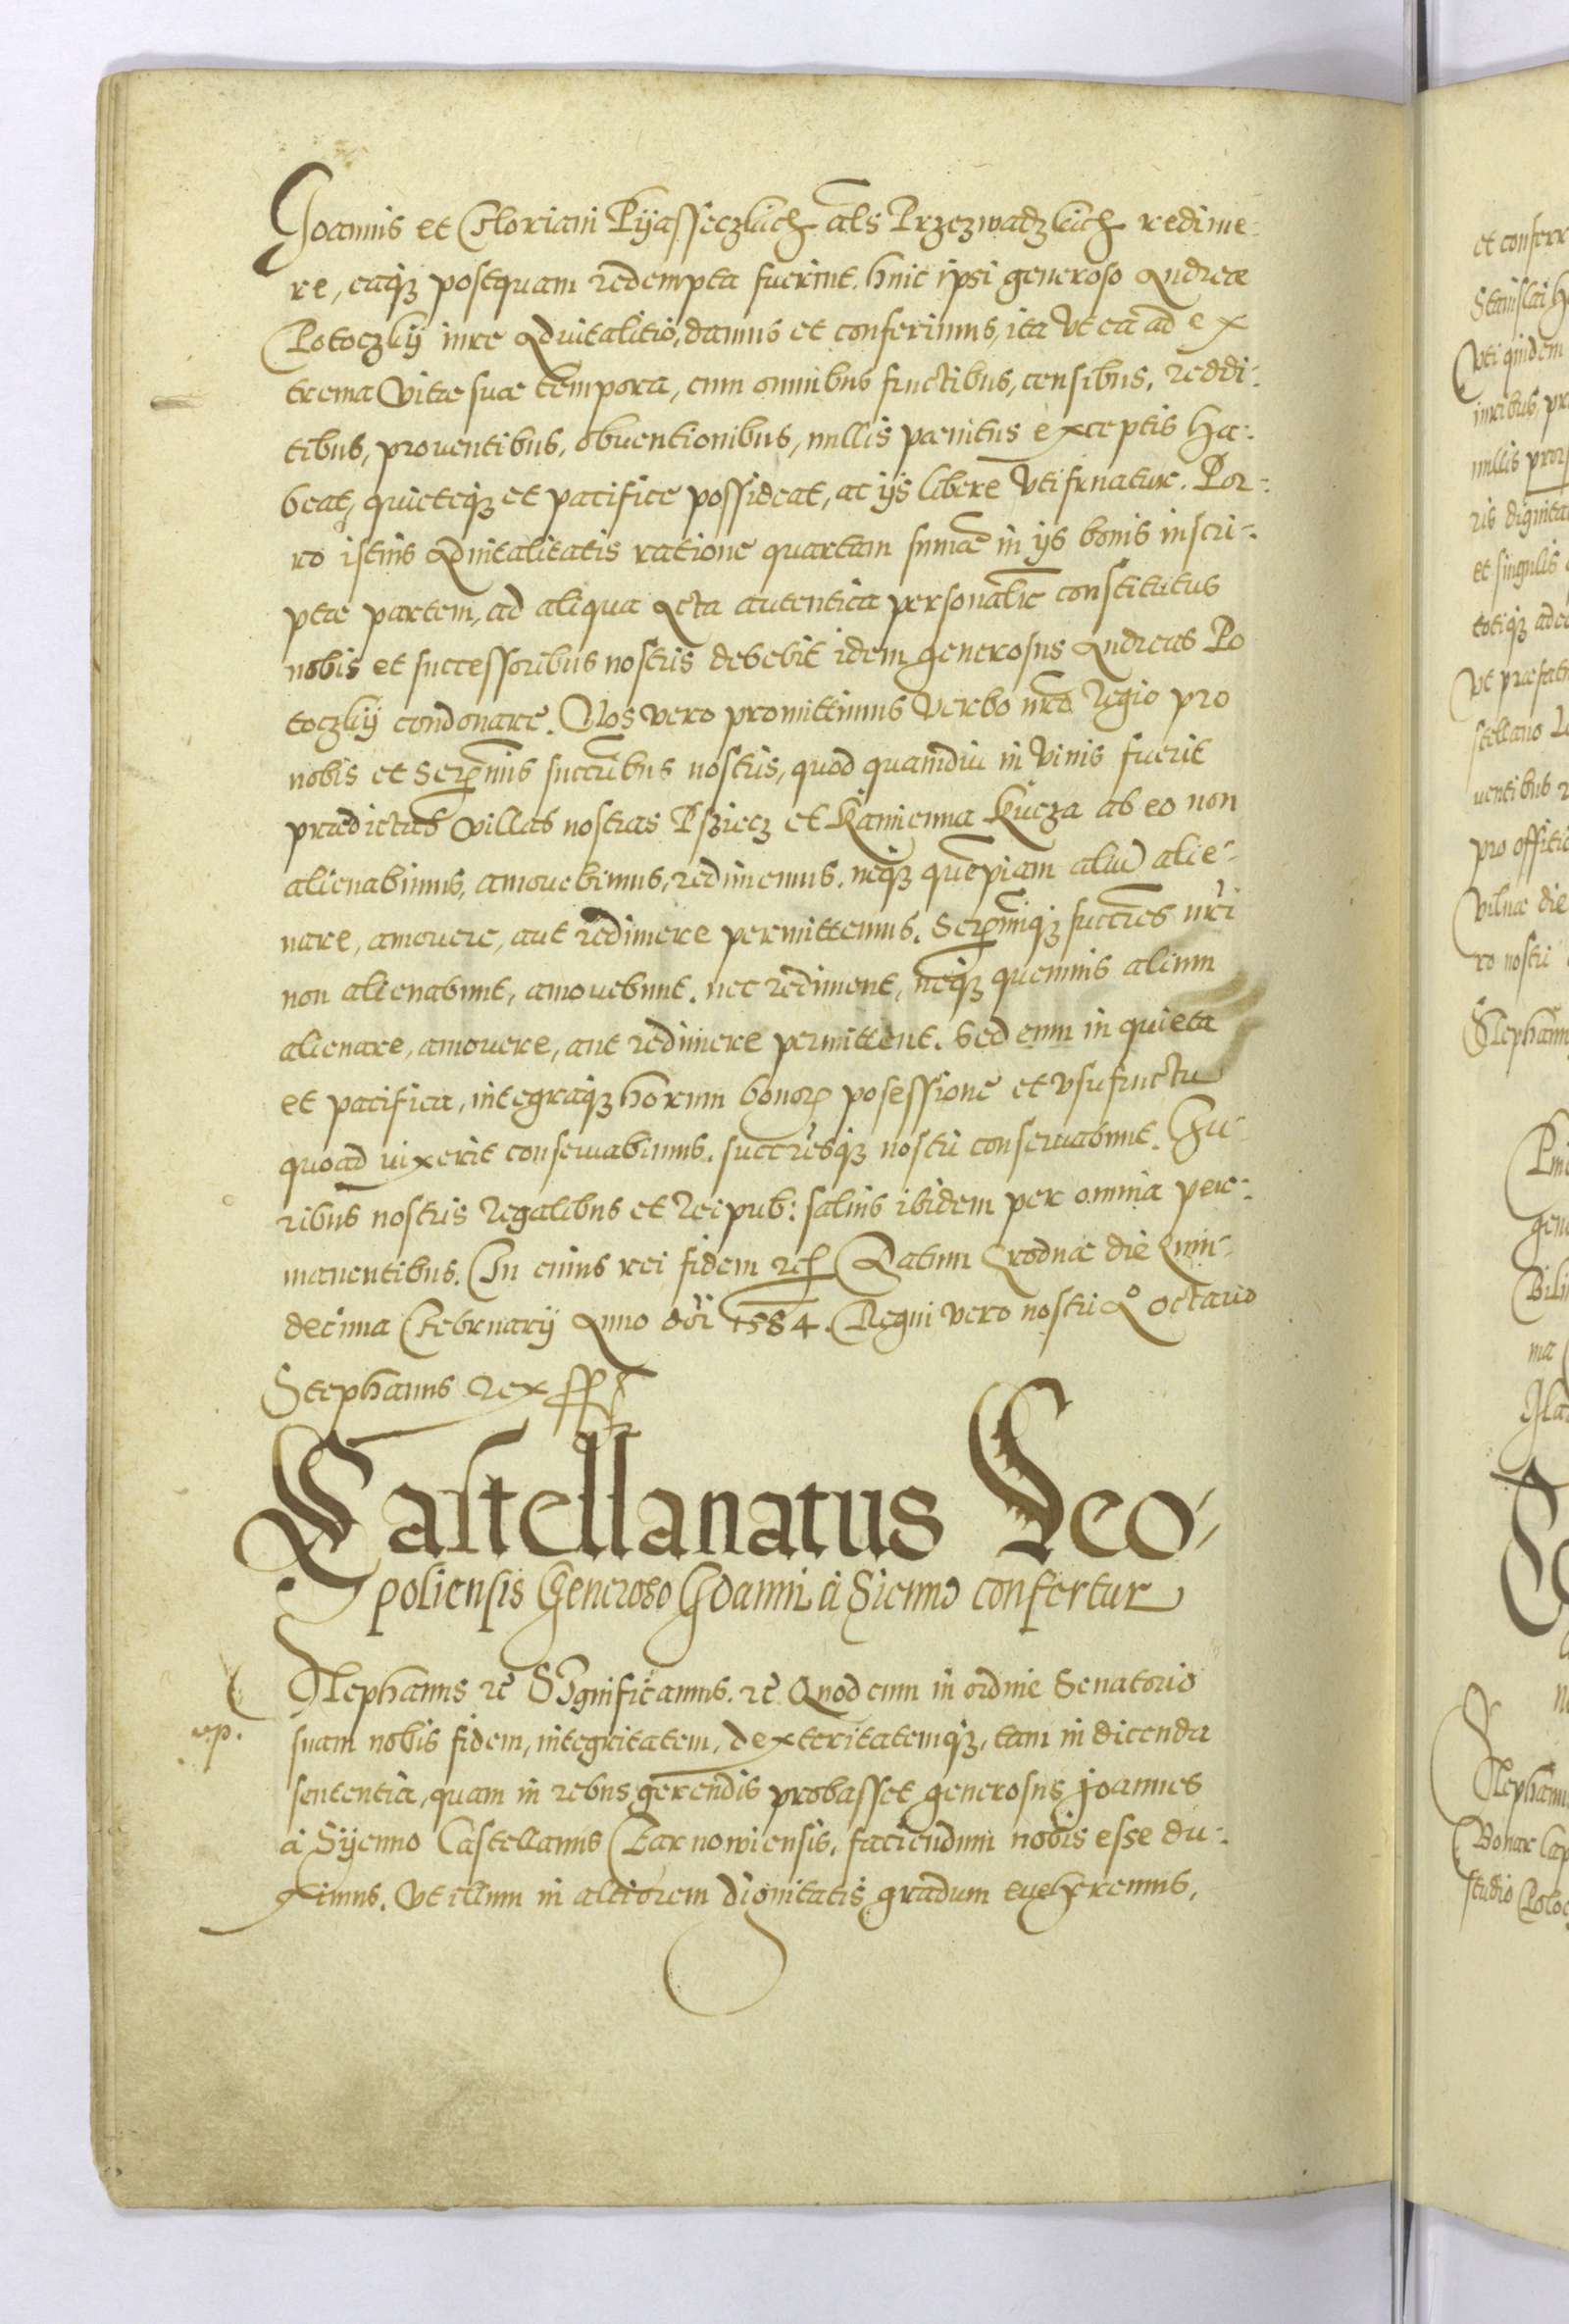 Joannis et Floriani Pÿasseczkich als Przezwadzkich redime-
re, eaqꝫ postquam redempta fuerint. huic ipsi generoso Andreæ
Potoczkÿ iure Aduitalitio, damus et conferimus, ita Vt ea ad ex
trema Vitæ suæ tempora, cum omnibus fructibus, censibus, reddi-
tibus, prouentibus, obuentionibus, nullis pænitus exceptis ha-
beat, quieteqꝫ et pacifice possideat, ac ijs libere Vti fruatur. Por-
ro istius Aduitalitatis ratione quartam sum̄æ in ijs bonis inscri-
ptæ partem, ad aliqua Acta autentica personalr̄ constitutus
nobis et successoribus nostris debebit idem generosus Andreas Po
toczkÿ condonare. Nos vero promittimus Verbo nr̄o Regio pro
nobis et Serēnnis succrībus nostris, quod quamdiu in Viuis fuerit
prædictas Villas nostras Psziecz et Kamienna Kucza ab eo non
alienabimus, amouebimus, redimemus. neqꝫ quēmpiam aliū alie-
nare, amouere, aut redimere permittemus. Serēnniqꝫ succrēs nr̄i
non alienabunt, amouebunt. nec rediment, neqꝫ quemuis alium
alienare, amouere, aut redimere permittent. Sed eum in quieta
et pacifica, integraqꝫ horum bonorꝫ posessione et vsufructu
quoad vixerit conseruabimus. succrēsqꝫ nostri conseruabunt. Iu-
ribus nostris Regalibus et Reipub: saluis ibidem per omnia per-
manentibus. In cuius rei fidem etc Datum Grodnæ die Quin-
decima Februarÿ Anno dn̄i 1584. Regni vero nostri Aº octauo
Stephanus Rex
Castellanatus Leo-
poliensis Generoso Joanni à Sienno confertur
Stephanus etc Significamus. etc Quod cum in ordine Senatorio
suam nobis fidem, integritatem, dexteritatemqꝫ, tam in dicenda
sententia, quam in rebus gerendis probasset generosus Joannes
à Sÿenno Castellanus Tarnowiensis, faciendum nobis esse du-
ximus. Vt illum in altiorem dignitatis gradum eueheremus,